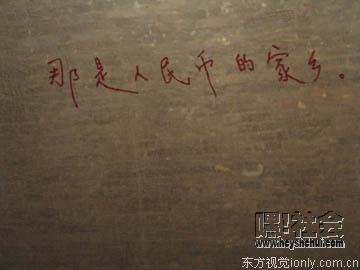 那是人民币的家乡。
嘿社会
www.heyshehui.com
东方视觉ionly.com.cn